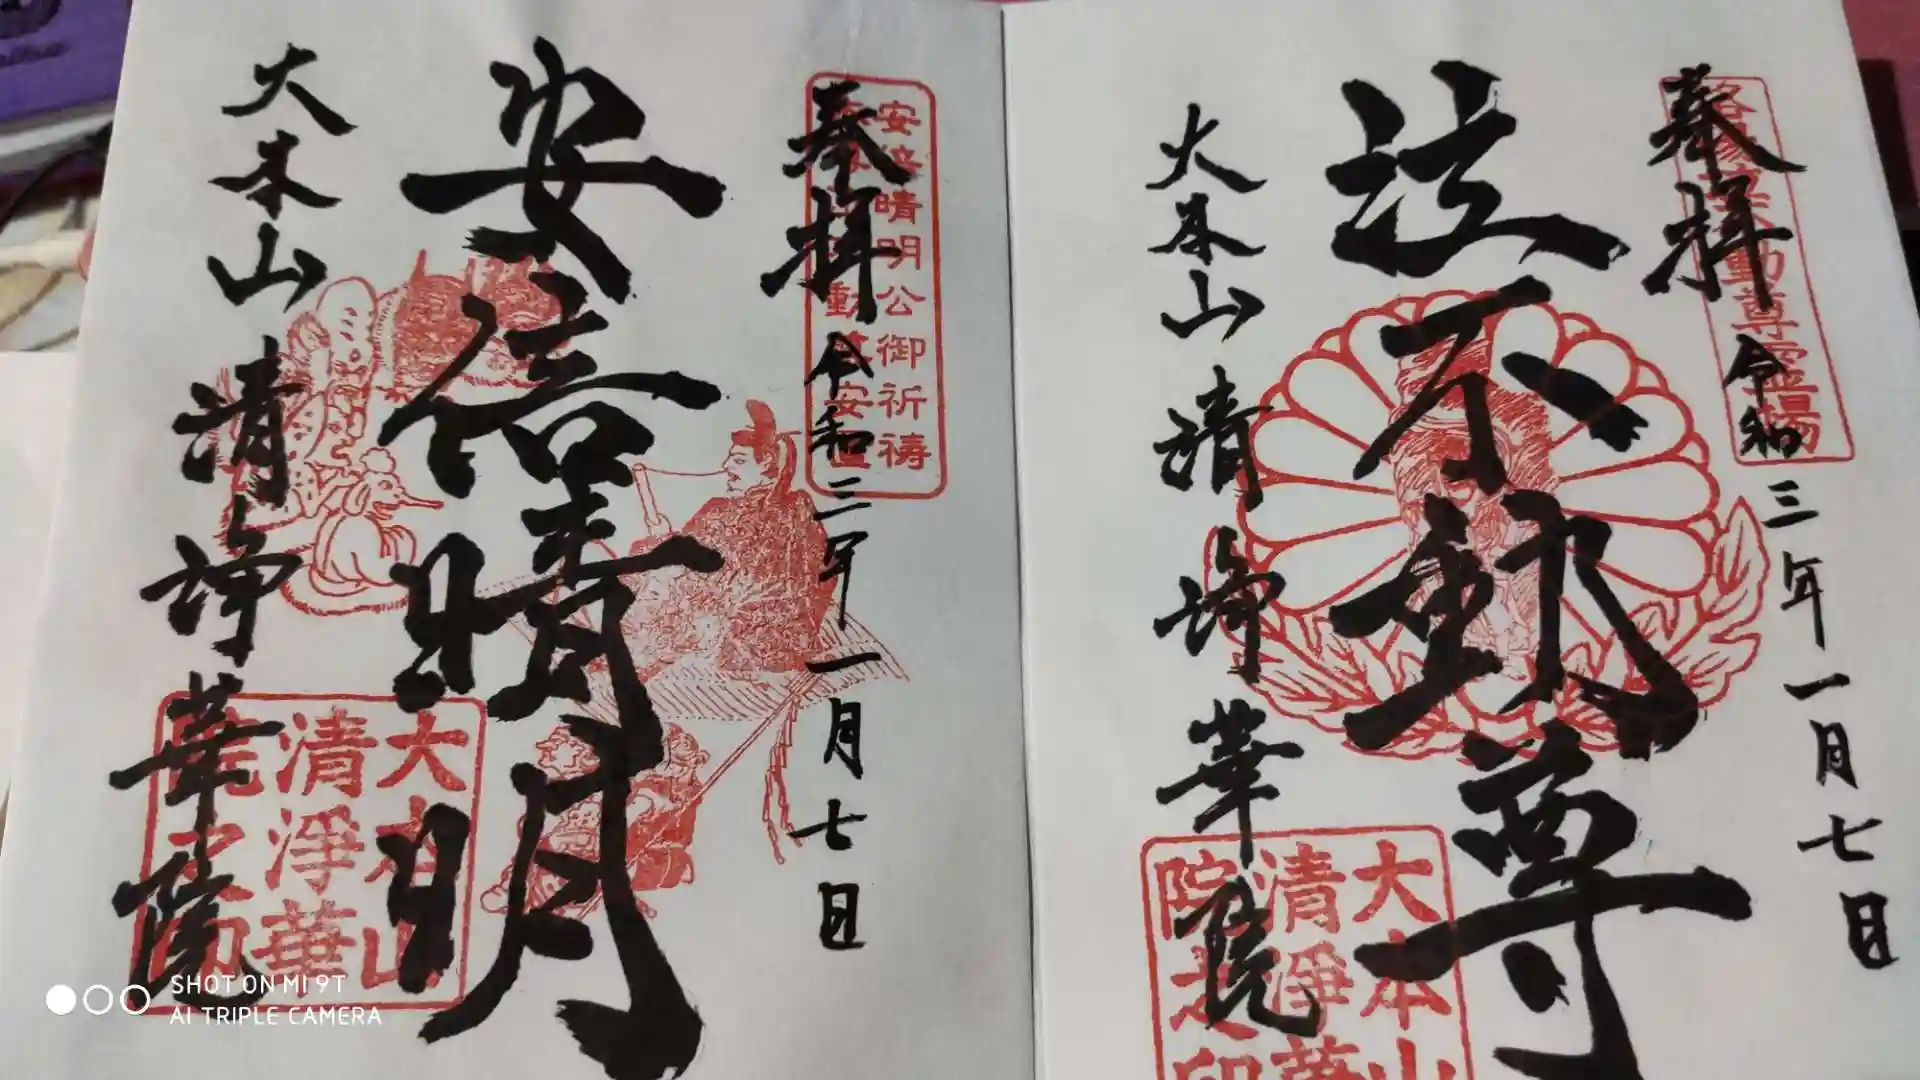 奉拝
令和三年一月七日
泣不動尊
大本山
清浄華院
大本山
清淨華
院之印
奉拝
令和三年一月七日
安倍晴明公御祈祷
安倍晴明
大本山
清浄華院
大本山
清淨華
院之印
SHOT ON MI 9T
AI TRIPLE CAMERA